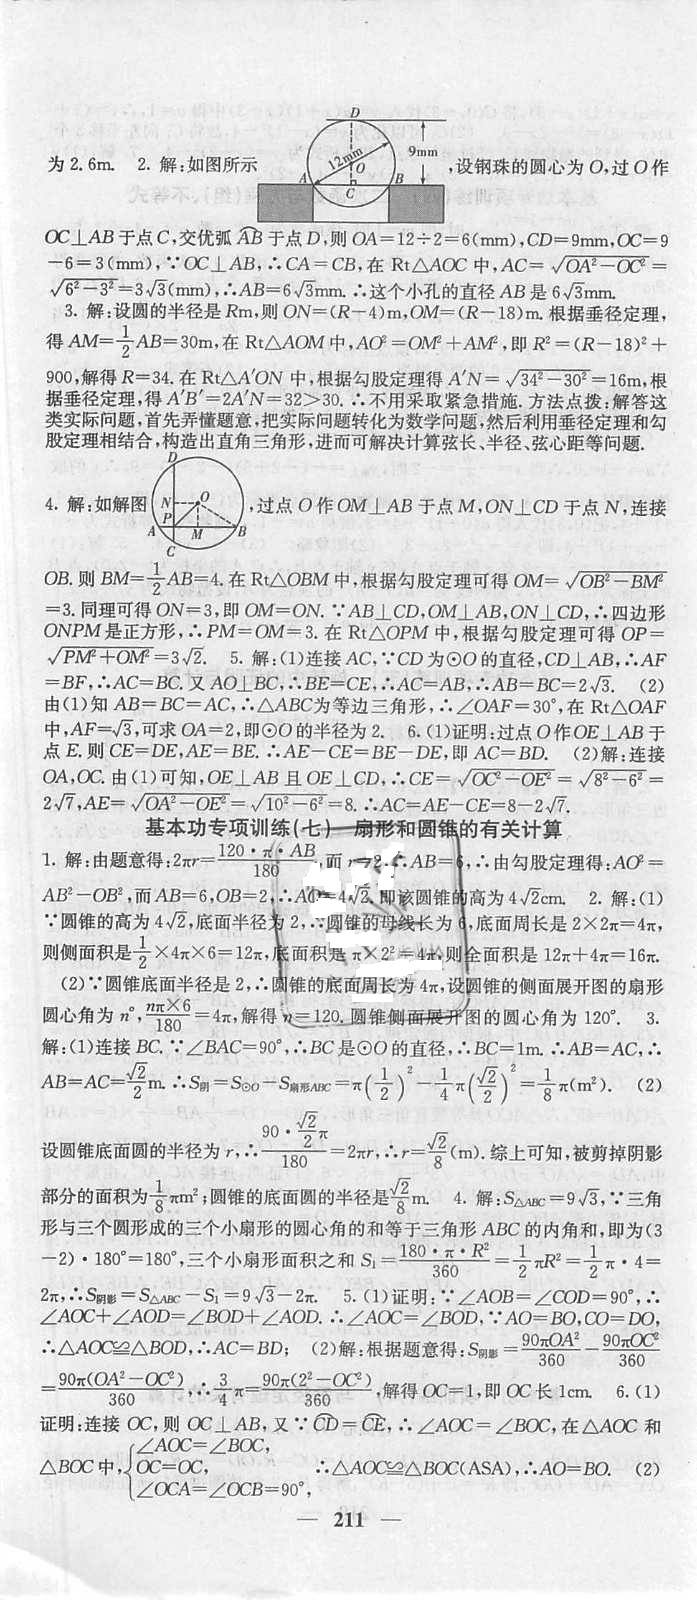 D
9mm
12mm
O
A
C
B
为2.6m. 2. 解:如图所示 ,设钢珠的圆心为O,过O作
OC⊥AB于点C,交优弧AB于点D,则OA=12÷2=6(mm),CD=9mm,OC=9
-6=3(mm),∵OC⊥AB,∴CA=CB,在Rt△AOC中,AC=√(OA²-OC²)=
√(6²-3²)=3√3(mm),∴AB=6√3mm. ∴这个小孔的直径AB是6√3mm.
3. 解:设圆的半径是Rm,则ON=(R-4)m,OM=(R-18)m. 根据垂径定理,
得AM=1/2AB=30m,在Rt△AOM中,AO²=OM²+AM²,即R²=(R-18)²+
900,解得R=34. 在Rt△A′ON中,根据勾股定理得A′N=√(34²-30²)=16m,根
据垂径定理,得A′B′=2A′N=32>30. ∴不用采取紧急措施. 方法点拨:解答这
类实际问题,首先弄懂题意,把实际问题转化为数学问题,然后利用垂径定理和勾
股定理相结合,构造出直角三角形,进而可解决计算弦长、半径、弦心距等问题.
D
N
O
P
A
M
B
C
4. 解:如解图 ,过点O作OM⊥AB于点M,ON⊥CD于点N,连接
OB. 则BM=1/2AB=4. 在Rt△OBM中,根据勾股定理可得OM=√(OB²-BM²)
=3. 同理可得ON=3,即OM=ON. ∵AB⊥CD,OM⊥AB,ON⊥CD,∴四边形
ONPM是正方形,∴PM=OM=3. 在Rt△OPM中,根据勾股定理可得OP=
√(PM²+OM²)=3√2. 5. 解:(1)连接AC,∵CD为⊙O的直径,CD⊥AB,∴AF
=BF,∴AC=BC. 又AO⊥BC,∴BE=CE,∴AC=AB,∴AB=BC=2√3. (2)
由(1)知AB=BC=AC,∴△ABC为等边三角形,∴∠OAF=30°,在Rt△OAF
中,AF=√3,可求OA=2,即⊙O的半径为2. 6. (1)证明:过点O作OE⊥AB于
点E. 则CE=DE,AE=BE. ∴AE-CE=BE-DE,即AC=BD. (2)解:连接
OA,OC. 由(1)可知,OE⊥AB且OE⊥CD,∴CE=√(OC²-OE²)=√(8²-6²)=
2√7,AE=√(OA²-OE²)=√(10²-6²)=8. ∴AC=AE-CE=8-2√7.
基本功专项训练(七) 扇形和圆锥的有关计算
1. 解:由题意得:2πr=120·π·AB/180,而r=2,∴AB=6,∴由勾股定理得:AO²=
AB²-OB²,而AB=6,OB=2,∴AO=4√2,即该圆锥的高为4√2cm. 2. 解:(1)
∵圆锥的高为4√2,底面半径为2,∴圆锥的母线长为6,底面周长是2×2π=4π,
则侧面积是1/2×4π×6=12π,底面积是π×2²=4π,则全面积是12π+4π=16π.
(2)∵圆锥底面半径是2,∴圆锥的底面周长为4π,设圆锥的侧面展开图的扇形
圆心角为n°,nπ×6/180=4π,解得n=120. 圆锥侧面展开图的圆心角为120°. 3.
解:(1)连接BC. ∵∠BAC=90°,∴BC是⊙O的直径,∴BC=1m. ∴AB=AC,∴
AB=AC=√2/2m. ∴S阴=S⊙O-S扇形ABC=π(1/2)²-1/4π(√2/2)²=1/8π(m²). (2)
设圆锥底面圆的半径为r,∴90·√2/2π/180=2πr,∴r=√2/8(m). 综上可知,被剪掉阴影
部分的面积为1/8πm²;圆锥的底面圆的半径是√2/8m. 4. 解:S△ABC=9√3,∵三角
形与三个圆形成的三个小扇形的圆心角的和等于三角形ABC的内角和,即为(3
-2)·180°=180°,三个小扇形面积之和S₁=180·π·R²/360=1/2πR²=1/2π·4=
2π,∴S阴影=S△ABC-S₁=9√3-2π. 5. (1)证明:∵∠AOB=∠COD=90°,∴
∠AOC+∠AOD=∠BOD+∠AOD. ∴∠AOC=∠BOD,∵AO=BO,CO=DO,
∴△AOC≌△BOD,∴AC=BD; (2)解:根据题意得:S阴影=90πOA²/360-90πOC²/360
=90π(OA²-OC²)/360,∴3/4π=90π(2²-OC²)/360,解得OC=1,即OC长1cm. 6. (1)
证明:连接OC,则OC⊥AB,又∵CD=CE,∴∠AOC=∠BOC,在△AOC和
△BOC中,{∠AOC=∠BOC,
OC=OC, ∴△AOC≌△BOC(ASA),∴AO=BO. (2)
∠OCA=∠OCB=90°,
— 211 —